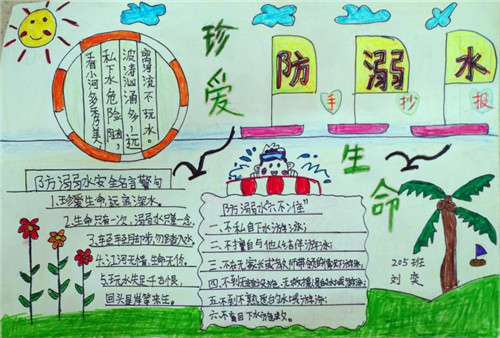 珍爱
生命
防溺水
手抄报
看小河多秀美,
私下水危险隐,
波涛汹涌多,远
离湍流不玩水。
防溺水安全名言警句
1.珍爱生命,远离深水。
2.生命只有一次,溺水只是一念
4.江河无情,生命无
5.玩水失足千古恨,
回头是岸
防溺水“六不准”
一、不私自下水游泳;
二、不擅自与他人结伴游泳;
三、不在无家长或教师带领的情况下游泳;
四、不到无安全设施、无救援人员的水域游泳;
五、不到不熟悉的水域游泳;
六、不盲目下水施救。
205班
刘奕